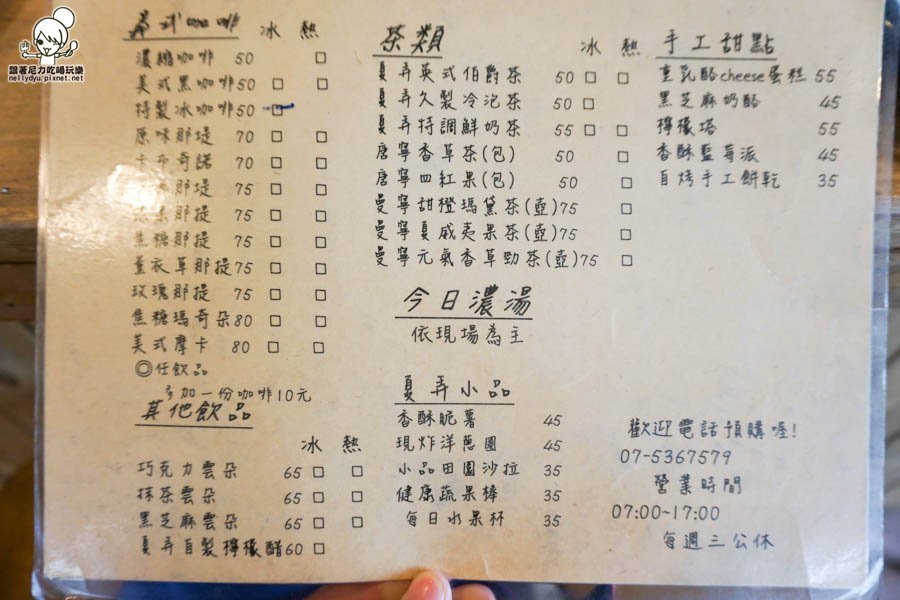 跟著尼力吃喝玩樂
nellydyu.pixnet.net
義式咖啡 冰 熱
濃縮咖啡 50 □ □
美式黑咖啡 50 □ □
特製冰咖啡 50 □
原味那堤 70 □ □
卡布奇諾 70 □ □
那堤 75 □ □
那提 75 □ □
焦糖那提 75 □ □
薰衣草那提 75 □ □
玫瑰那提 75 □ □
焦糖瑪奇朵 80 □ □
美式摩卡 80 □ □
◎任飲品
多加一份咖啡10元
其他飲品
冰 熱
巧克力雲朵 65 □ □
抹茶雲朵 65 □ □
黑芝麻雲朵 65 □ □
夏弄自製檸檬醋 60 □
茶類 冰 熱
夏弄英式伯爵茶 50 □ □
夏弄久製冷泡茶 50 □
夏弄特調鮮奶茶 55 □ □
唐寧香草茶(包) 50 □
唐寧四紅果(包) 50 □
曼寧甜橙瑪黛茶(壺) 75 □
曼寧夏威夷果茶(壺) 75 □
曼寧元氣香草勁茶(壺) 75 □
今日濃湯
依現場為主
夏弄小品
香酥脆薯 45
現炸洋蔥圈 45
小品田園沙拉 35
健康蔬果棒 35
每日水果杯 35
手工甜點
重乳酪cheese蛋糕 55
黑芝麻奶酪 45
檸檬塔 55
香酥藍莓派 45
自烤手工餅乾 35
歡迎電話預購喔!
07-5367579
營業時間
07:00~17:00
每週三公休